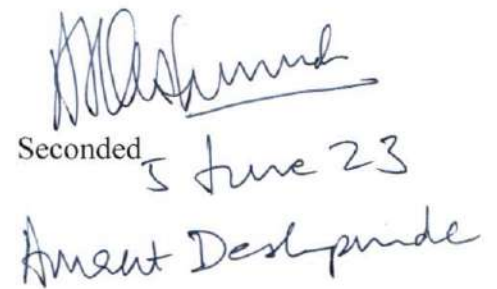 Seconded
5 June 23
Anant Deshpande